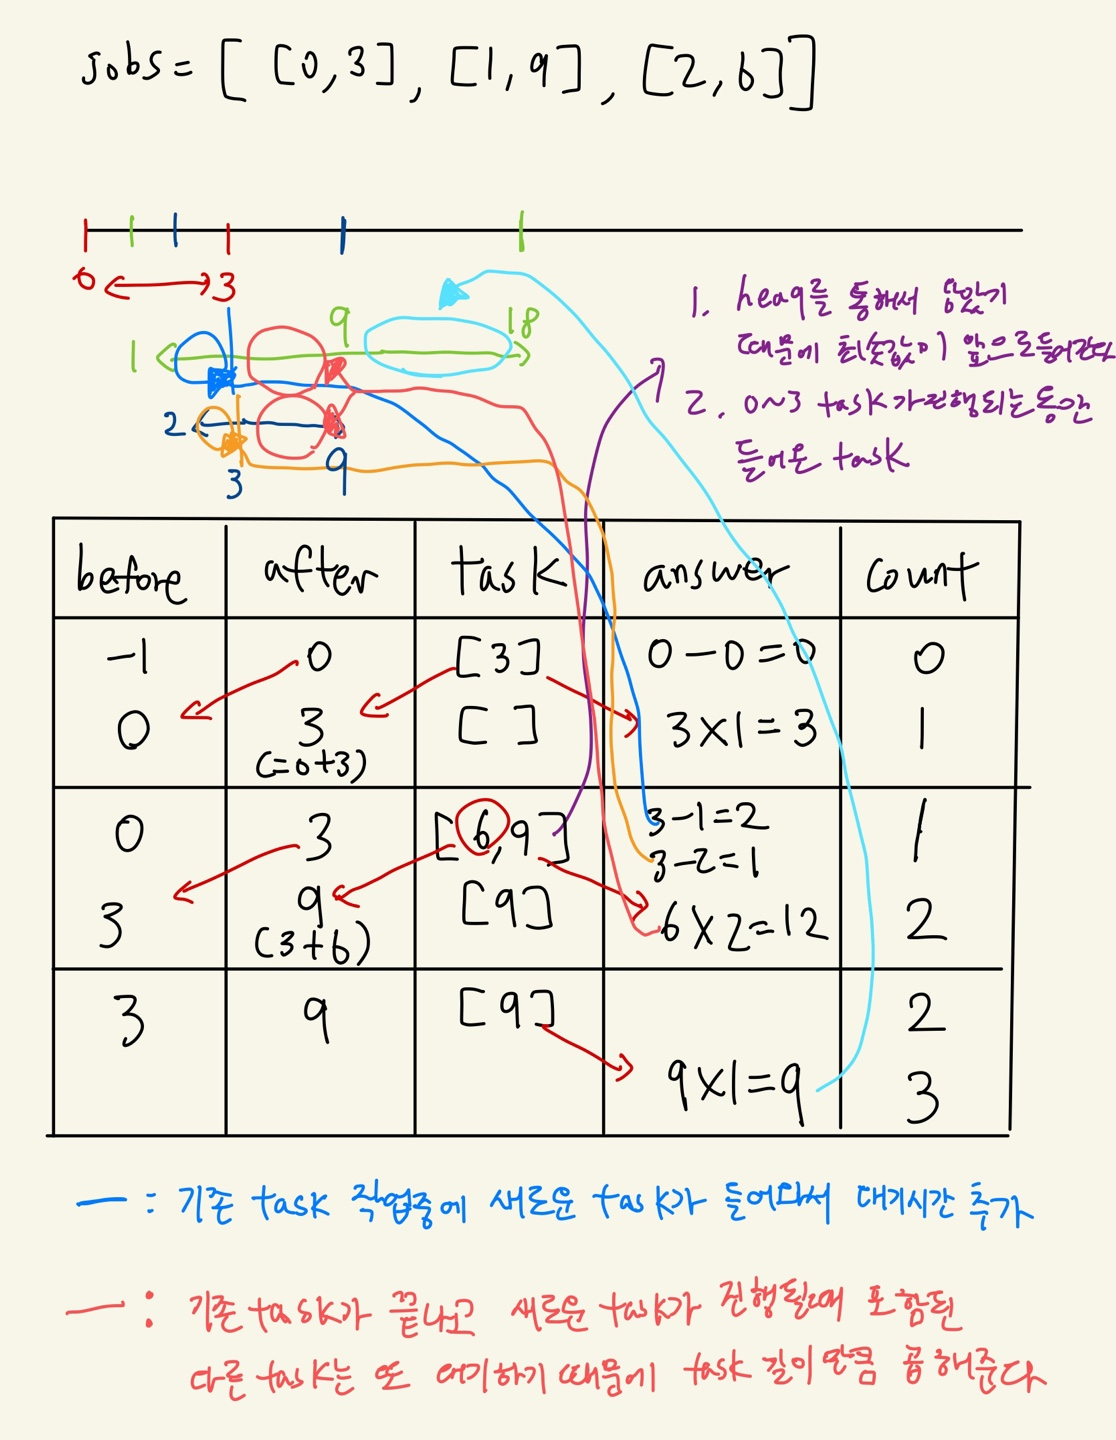 jobs = [ [0,3], [1,9], [2,6]]
0 3
1 9 18
2 9
3
1. heaq를 통해서 담았기
때문에 최솟값이 앞으로 들어간다
2. 0~3 task가 진행되는 동안
들어온 task
before after task answer count
-1 0 [3] 0-0=0 0
0 3 [ ] 3x1=3 1
(=0+3)
0 3 [6,9] 3-1=2 1
3-2=1
3 9 [9] 6x2=12 2
(3+6)
3 9 [9] 2
9x1=9 3
— : 기존 task 작업중에 새로운 task가 들어와서 대기시간 추가
— : 기존 task가 끝나고 새로운 task가 진행될때 포함된
다른 task는 또 대기하기 때문에 task 길이만큼 곱해준다